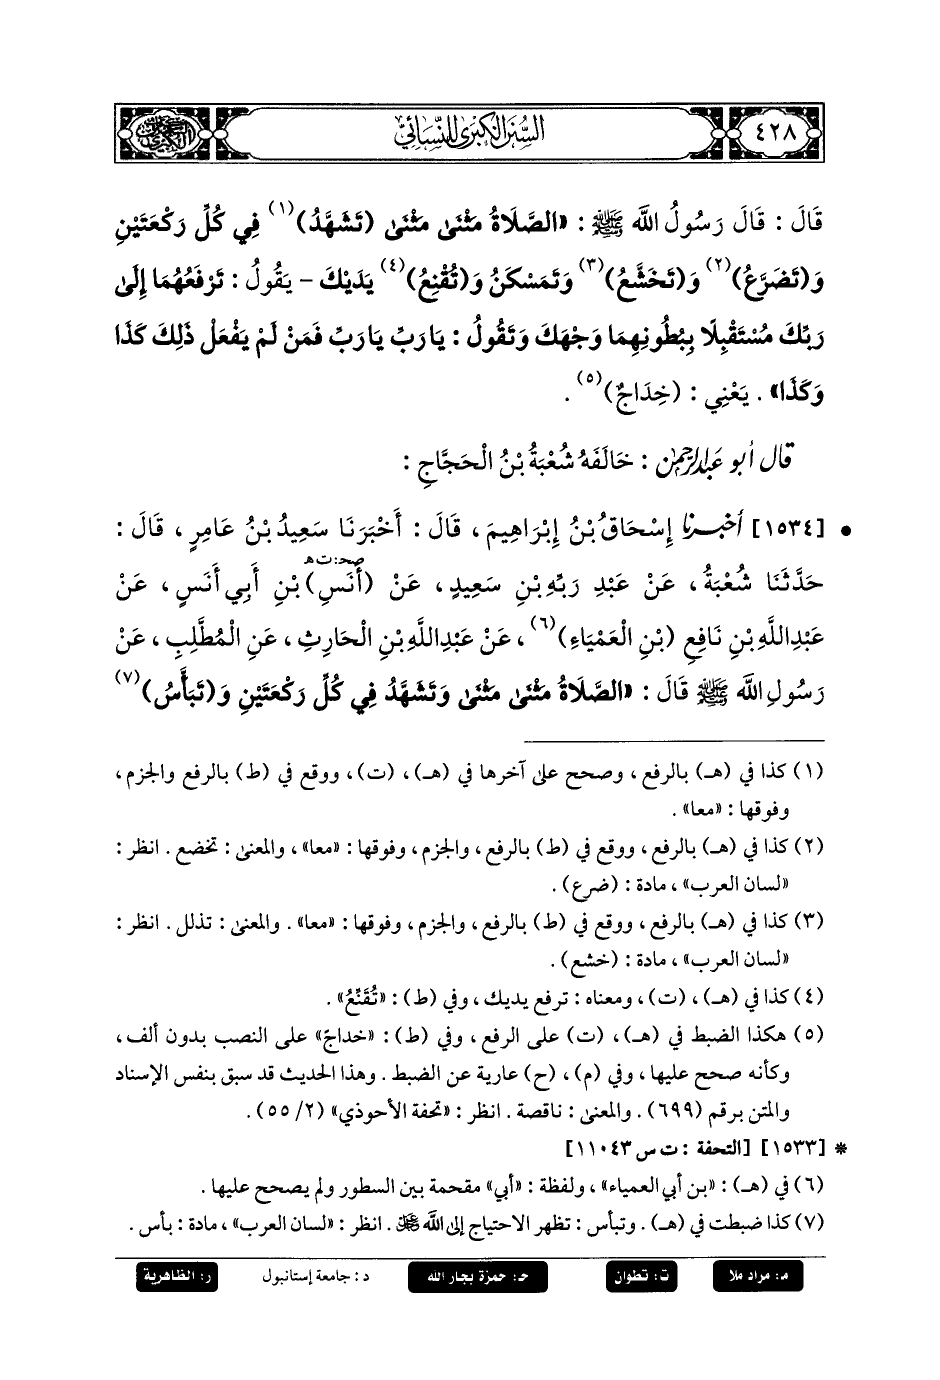 ٤٢٨
السُّنَنُ الكُبْرَى لِلنَّسَائِيِّ
قَالَ : قَالَ رَسُولُ اللَّه ﷺ : «الصَّلَاةُ مَثْنَىٰ مَثْنَىٰ (تَشَهَّدُ)(١) فِي كُلِّ رَكْعَتَيْنِ
وَ(تَضَرَّعُ)(٢) وَ(تَخَشَّعُ)(٣) وَتَمَسْكَنُ وَ(تُقْنِعُ)(٤) يَدَيْكَ – يَقُولُ : تَرْفَعُهُمَا إِلَىٰ
رَبِّكَ مُسْتَقْبِلًا بِبُطُونِهِمَا وَجْهَكَ وَتَقُولُ : يَارَبِّ يَارَبِّ فَمَنْ لَمْ يَفْعَلْ ذَلِكَ كَذَا
وَكَذَا» . يَعْنِي : (خِدَاجٌ)(٥) .
قال أبو عبدالرحمن : خَالَفَهُ شُعْبَةُ بْنُ الْحَجَّاجِ :
• [١٥٣٤] أخبرنا إِسْحَاقُ بْنُ إِبْرَاهِيمَ ، قَالَ : أَخْبَرَنَا سَعِيدُ بْنُ عَامِرٍ ، قَالَ :
صحـ: ت هـ
حَدَّثَنَا شُعْبَةُ ، عَنْ عَبْدِ رَبِّهِ بْنِ سَعِيدٍ ، عَنْ (أَنَسِ) بْنِ أَبِي أَنَسٍ ، عَنْ
عَبْدِاللَّهِ بْنِ نَافِعِ (بْنِ الْعَمْيَاءِ)(٦) ، عَنْ عَبْدِاللَّهِ بْنِ الْحَارِثِ ، عَنِ الْمُطَّلِبِ ، عَنْ
رَسُولِ اللَّه ﷺ قَالَ : «الصَّلَاةُ مَثْنَىٰ مَثْنَىٰ وَتَشَهَّدُ فِي كُلِّ رَكْعَتَيْنِ وَ(تَبَأَّسُ)(٧)
(١) كذا في (هـ) بالرفع ، وصحح على آخرها في (هـ) ، (ت) ، ووقع في (ط) بالرفع والجزم ،
وفوقها : «معا» .
(٢) كذا في (هـ) بالرفع ، ووقع في (ط) بالرفع ، والجزم ، وفوقها : «معا» ، والمعنى : تخضع . انظر :
«لسان العرب» ، مادة : (ضرع) .
(٣) كذا في (هـ) بالرفع ، ووقع في (ط) بالرفع ، والجزم ، وفوقها : «معا» . والمعنى : تذلل . انظر :
«لسان العرب» ، مادة : (خشع) .
(٤) كذا في (هـ) ، (ت) ، ومعناه : ترفع يديك ، وفي (ط) : «تُقَنِّعُ» .
(٥) هكذا الضبط في (هـ) ، (ت) على الرفع ، وفي (ط) : «خداجً» على النصب بدون ألف ،
وكأنه صحح عليها ، وفي (م) ، (ح) عارية عن الضبط . وهذا الحديث قد سبق بنفس الإسناد
والمتن برقم (٦٩٩) . والمعنى : ناقصة . انظر : «تحفة الأحوذي» (٢/ ٥٥) .
* [١٥٣٣] [التحفة : ت س ١١٠٤٣]
(٦) في (هـ) : «بن أبي العمياء» ، ولفظة : «أبي» مقحمة بين السطور ولم يصحح عليها .
(٧) كذا ضبطت في (هـ) . وتبأس : تظهر الاحتياج إلى اللَّه ﷻ . انظر : «لسان العرب» ، مادة : بأس .
م: مراد ملا ت: تطوان حـ: حمزة بجار الله د: جامعة إستانبول ر: الظاهرية